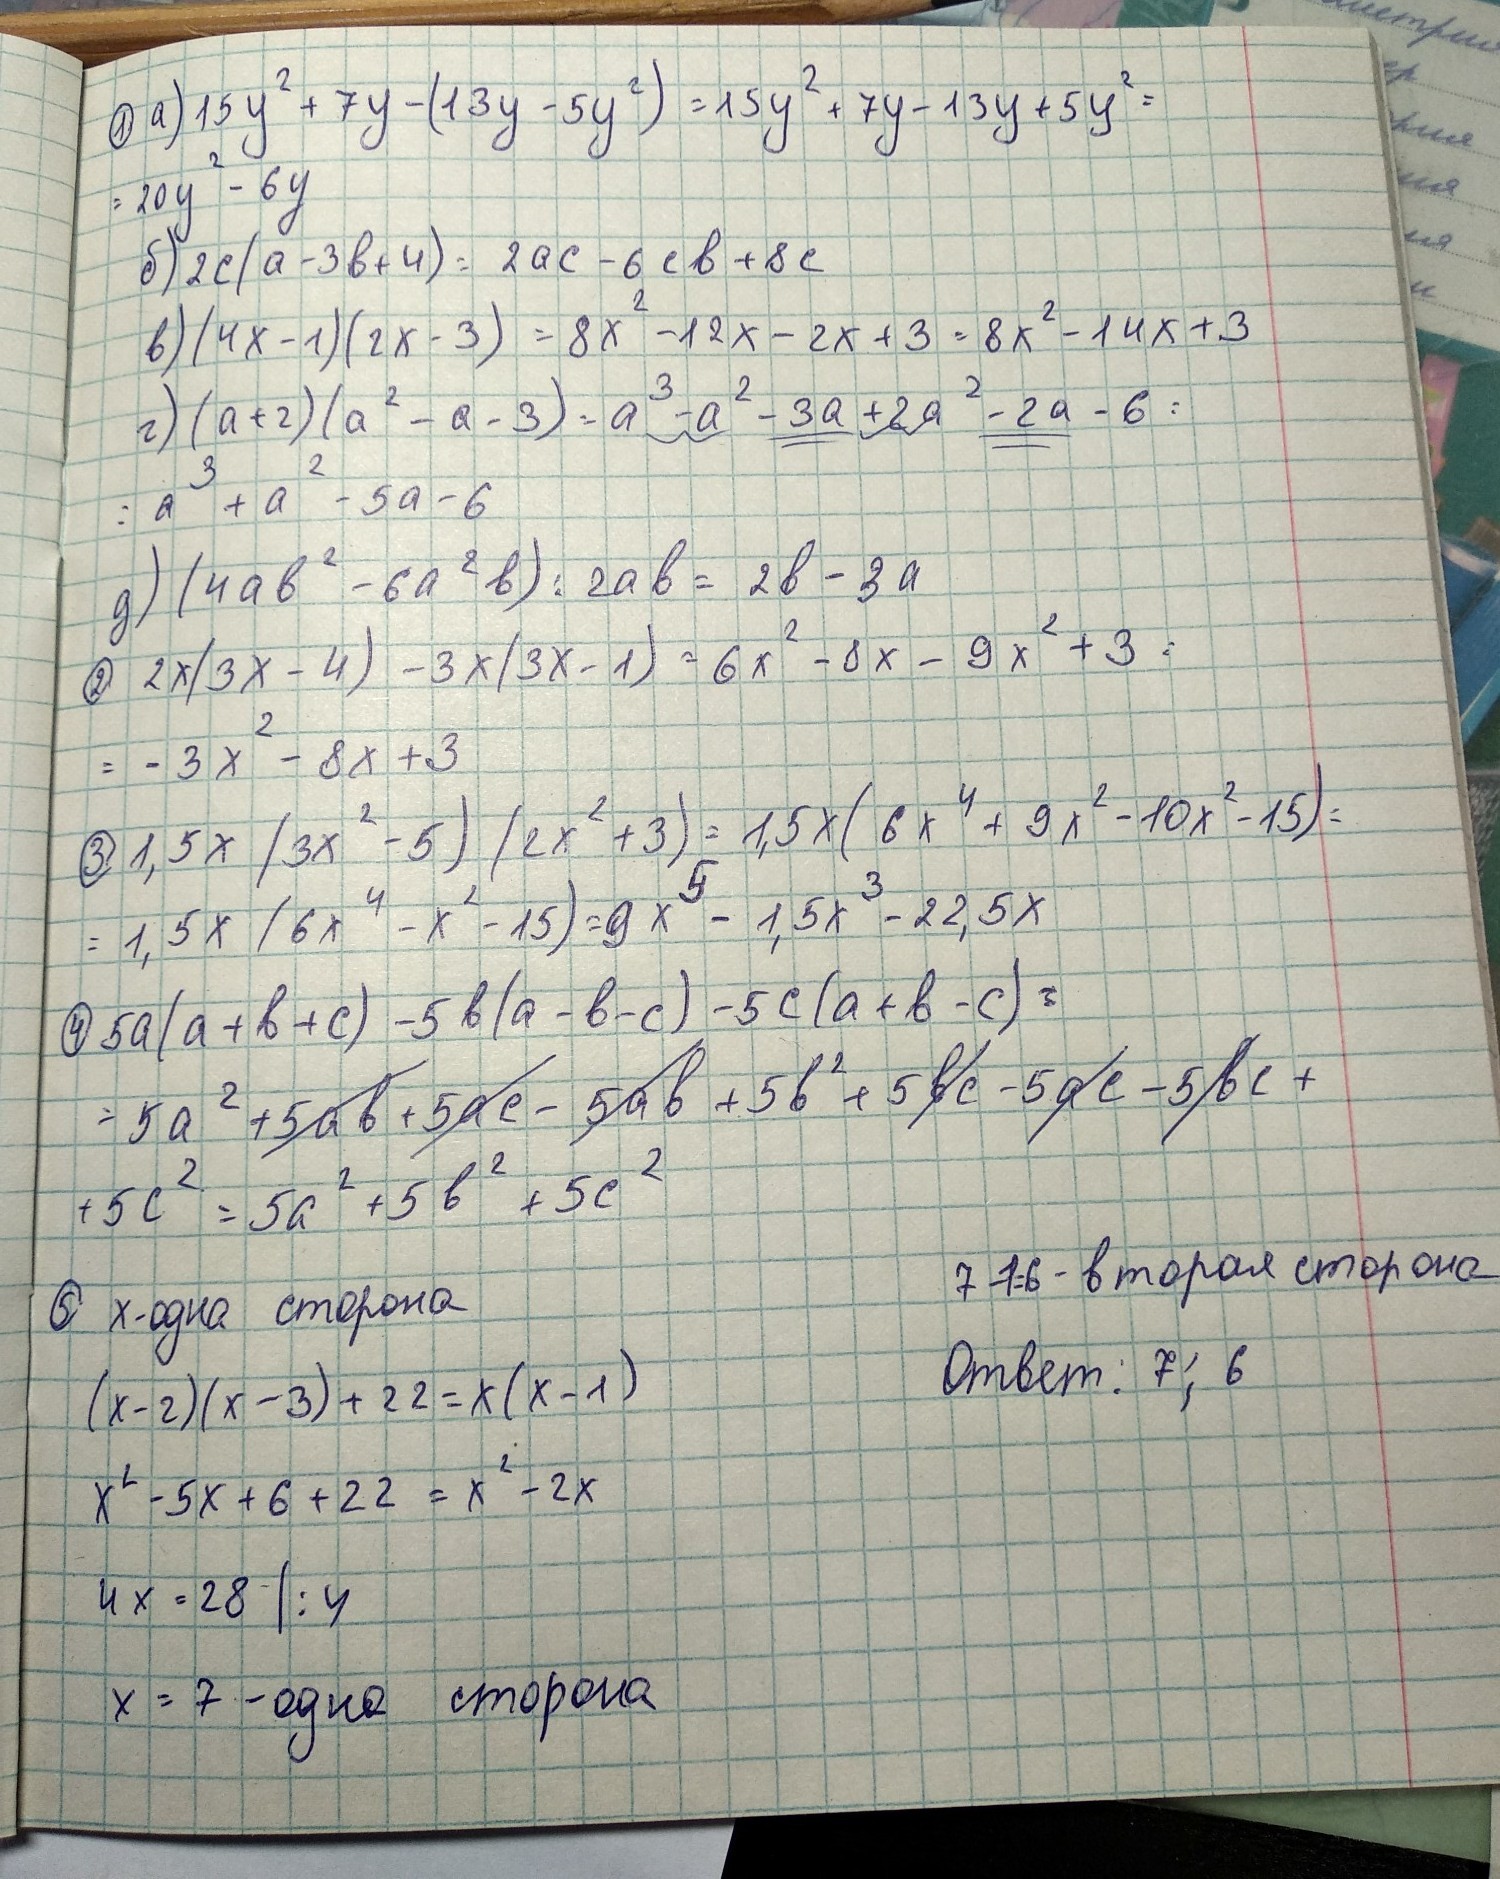 ① а) 15y² + 7y - (13y - 5y²) = 15y² + 7y - 13y + 5y² =
= 20y² - 6y
б) 2c(a - 3b + 4) = 2ac - 6cb + 8c
в) (4x - 1)(2x - 3) = 8x² - 12x - 2x + 3 = 8x² - 14x + 3
г) (a + 2)(a² - a - 3) = a³ - a² - 3a + 2a² - 2a - 6 =
= a³ + a² - 5a - 6
д) (4ab² - 6a²b) : 2ab = 2b - 3a
② 2x(3x - 4) - 3x(3x - 1) = 6x² - 8x - 9x² + 3 =
= -3x² - 8x + 3
③ 1,5x (3x² - 5) (2x² + 3) = 1,5x (6x⁴ + 9x² - 10x² - 15) =
= 1,5x (6x⁴ - x² - 15) = 9x⁵ - 1,5x³ - 22,5x
④ 5a(a + b + c) - 5b(a - b - c) - 5c(a + b - c) =
= 5a² + 5ab + 5ac - 5ab + 5b² + 5bc - 5ac - 5bc +
+ 5c² = 5a² + 5b² + 5c²
⑤ x - одна сторона
(x - 2)(x - 3) + 22 = x(x - 1)
x² - 5x + 6 + 22 = x² - 2x
4x = 28 | : 4
x = 7 - одна сторона
7 - 1 = 6 - вторая сторона
Ответ: 7; 6